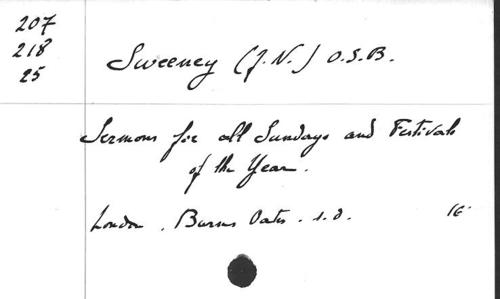 207
218
25
Sweeney (J.N.) O.S.B.
Sermons for all Sundays and Festivals
of the Year.
London. Burns Oates. s.d.